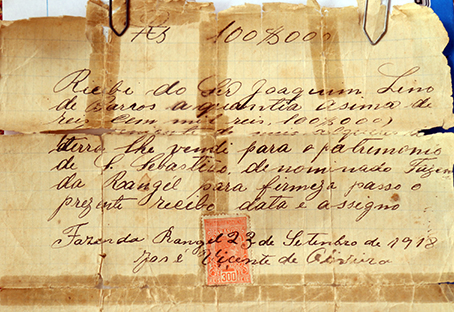 Rs 100$000
Recibi do Snr Joaquim Lino
de Barros a quantia asima de
reis Cem mil reis, 100$000)
terra lhe vendi para o patrimonio
de S. Sebastião, de nominado Fazen
da Rangel para firmeza passo o
prezente recibo data e assigno
Fazenda Rangel 23 de Setembro de 1918
José Vicente de Oliveira
300